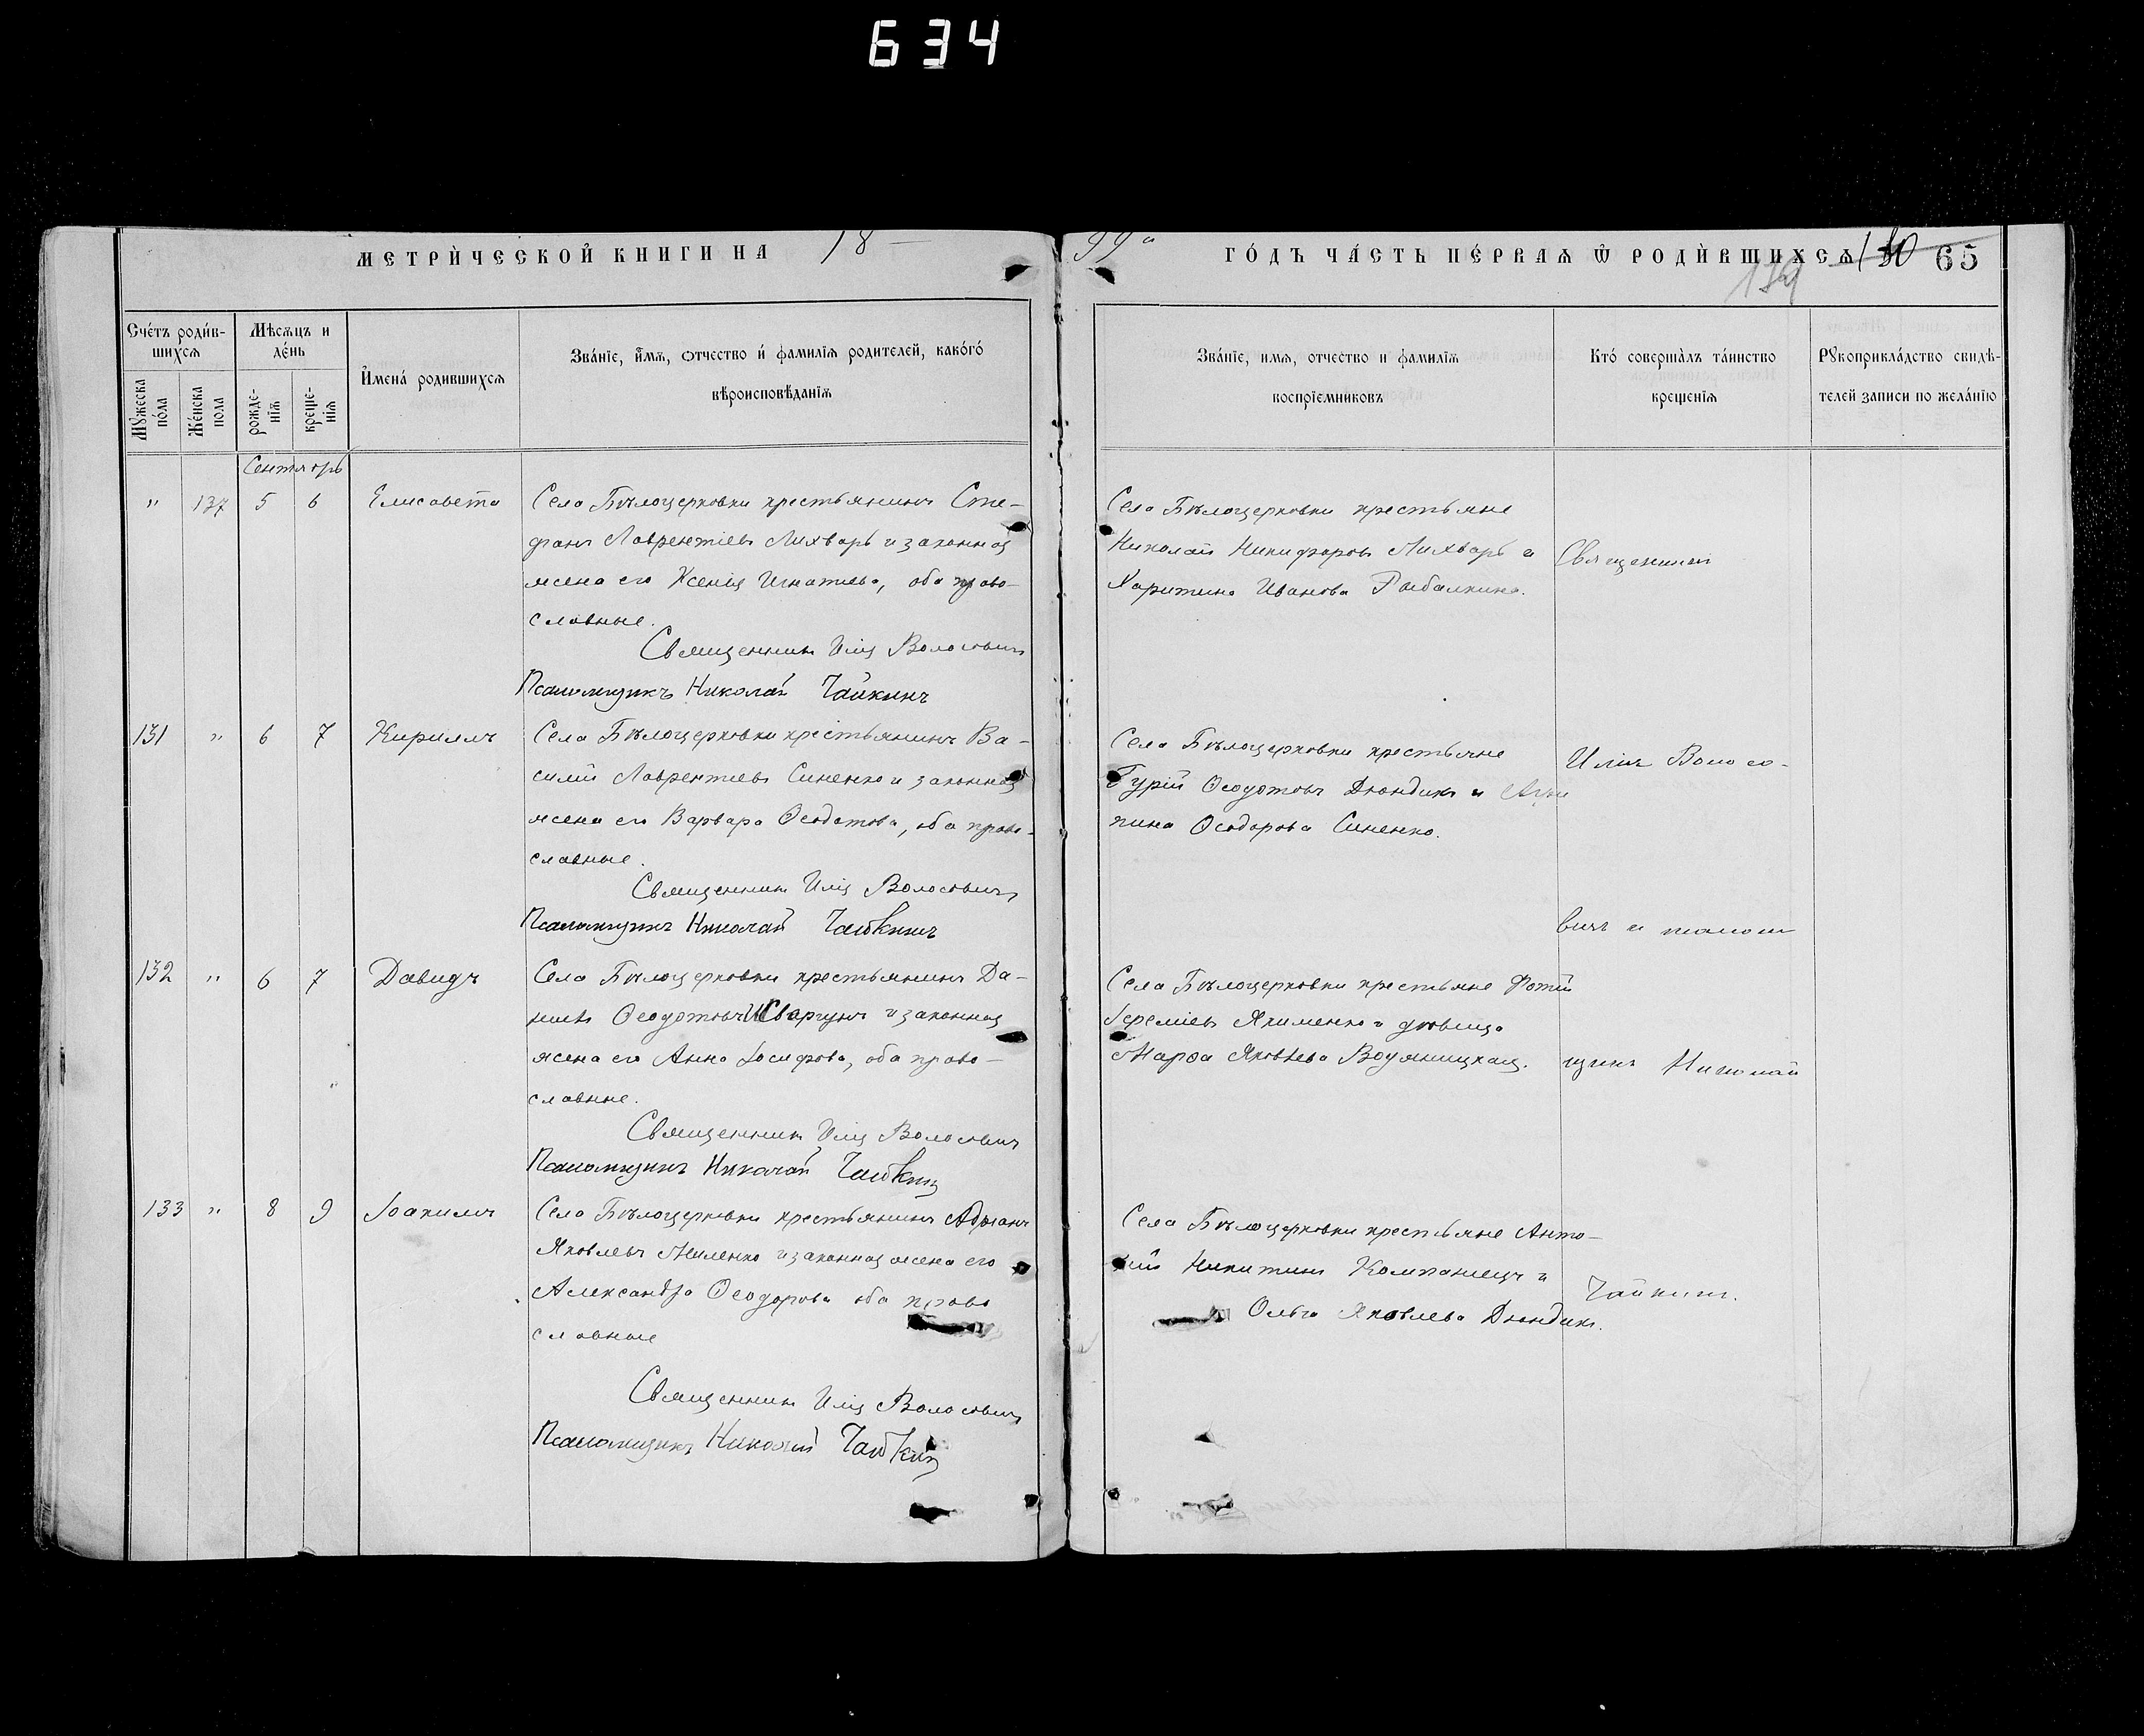 634
МЕТРИ́ЧЕСКОЙ КНИГИ НА 18
99 го ГО́ДЪ ЧА́СТЬ ПЕ́РВАЯ Ѿ РОДИ́ВШИХСЯ 65
Сче́тъ роди́в-
шихся
Мѣсяцъ и
де́нь
Мꙋжеска
по́ла
Же́нска
пола
рожде-
нія
креще-
нія
И҆мена́ родившихся
Зва́ніе, и҆́мя, ѻтчество и҆ фамилія родителей, како́го́
вѣроисповѣ́данія
Зва́ніе, имя, отчество и фамилія
воспріемниковъ
Кто́ соверша́лъ та́инство
крещенія
Рꙋкоприкла́дство свидѣ-
телей записи по жела́нію
Сентябрь
" 137 5 6 Елисавета
Села Бѣлоцерковки крестьянинъ Сте-
фанъ Лаврентіевъ Лихварь и законная
жена его Ксенія Игнатьева, оба право-
славные.
Священникъ Илія Волосовичъ
Псаломщикъ Николай Чайкинъ
Села Бѣлоцерковки крестьяне
Николай Никифоровъ Лихварь и
Харитина Иванова Рыбалкина.
Священникъ
131 " 6 7 Кириллъ
Села Бѣлоцерковки крестьянинъ Ва-
силій Лаврентіевъ Синенко и законная
жена его Варвара Ѳеодотова, оба право-
славные.
Священникъ Илія Волосовичъ
Псаломщикъ Николай Чайкинъ
Села Бѣлоцерковки крестьяне
Гурій Ѳеодотовъ Дюндикъ и Агри
пина Ѳеодорова Синенко.
Илія Волосо-
вичъ и псалом
132 " 6 7 Давидъ
Села Бѣлоцерковки крестьянинъ Да-
ніилъ Ѳеодотовъ и законная
жена его Анна Іосифова, оба право-
славные.
Священникъ Илія Волосовичъ
Псаломщикъ Николай Чайкинъ
Села Бѣлоцерковки крестьяне Фотій
Іереміевъ Якименко и дѣвица
Марѳа Яковлева Водяницкая.
щикъ Николай
133 " 8 9 Іоакимъ
Села Бѣлоцерковки крестьянинъ Адріанъ
Яковлевъ Миленко и законная жена его
Александра Ѳеодорова оба право
славные
Священникъ Илія Волосовичъ
Псаломщикъ Николай Чайкинъ
Села Бѣлоцерковки крестьяне Анто-
ній Никитинъ Компаніецъ и
Ольга Яковлева Дюндикъ.
Чайкинъ.